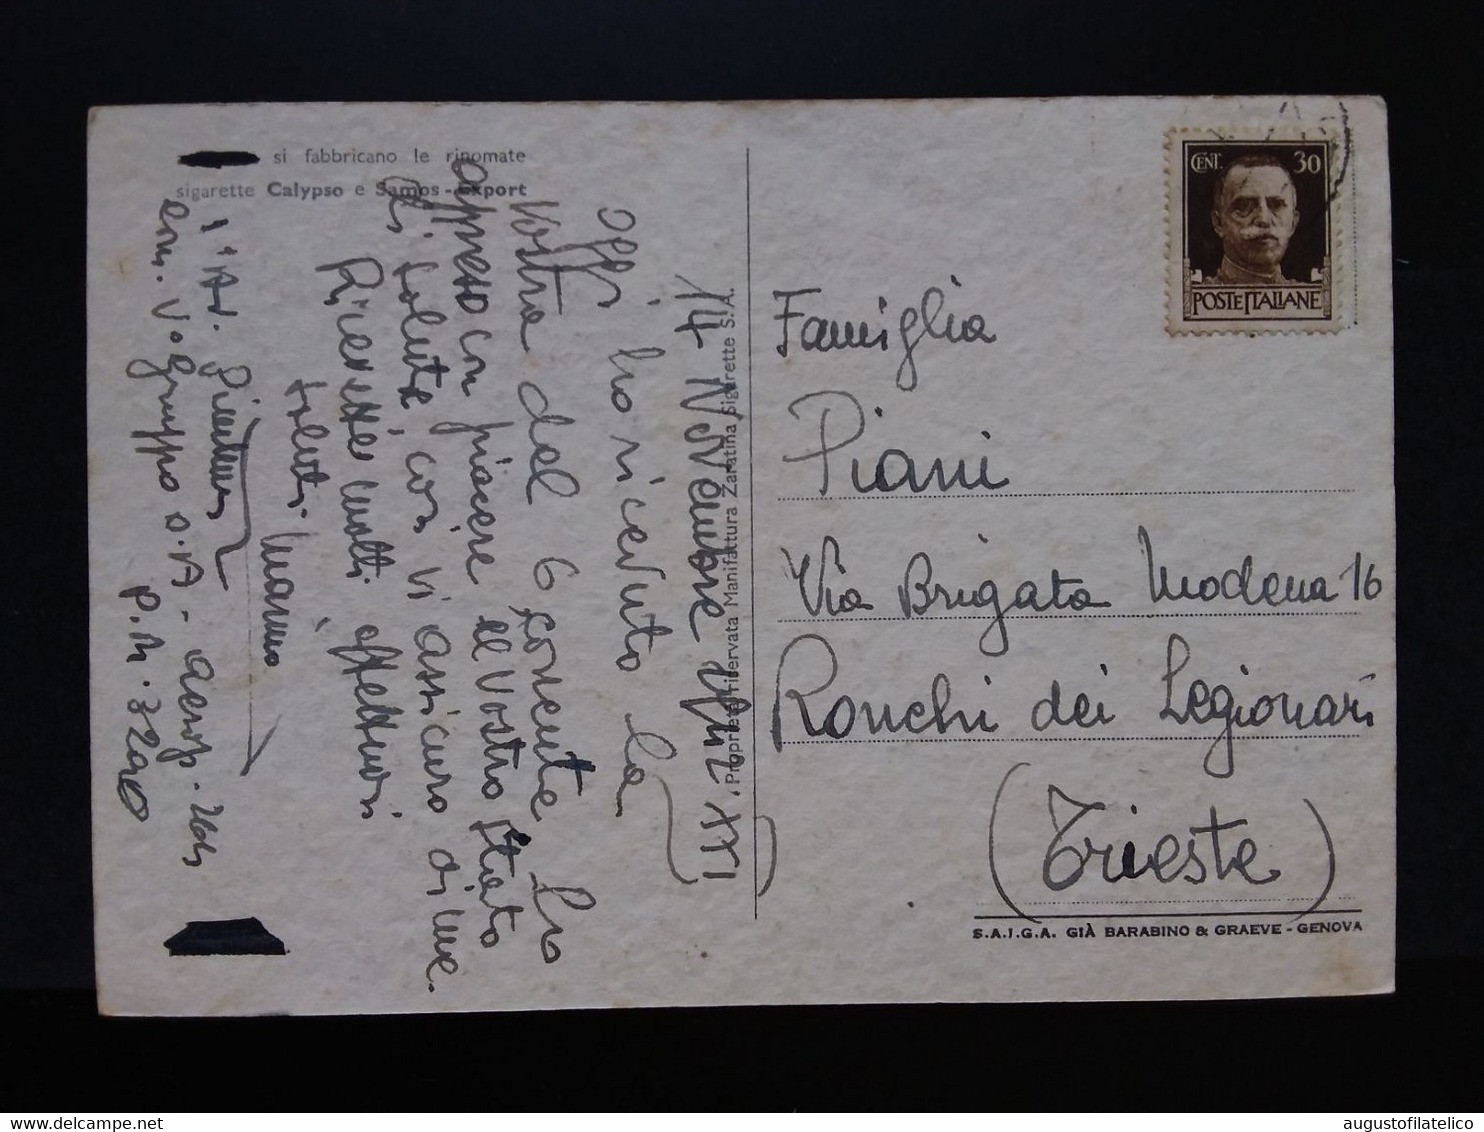 si fabbricano le rinomate
sigarette Calypso e Samos - Export
14 Novembre XXI
Oggi ho ricevuto la
Vostra del 6 corente ho
appreso con piacere el Vostro stato
di salute, cosi vi assicuro di me.
Ricevette molti affettuosi
saluti
P.M. 3200
Proprietà riservata Manifattura Zaratina Sigarette S. A.
CENT. 30
POSTE ITALIANE
Famiglia
Piani
Via Brigata Modena 16
Ronchi dei Legionari
(Trieste)
S.A.I.G.A. GIÀ BARABINO & GRAEVE - GENOVA
delcampe.net
augustofilatelico